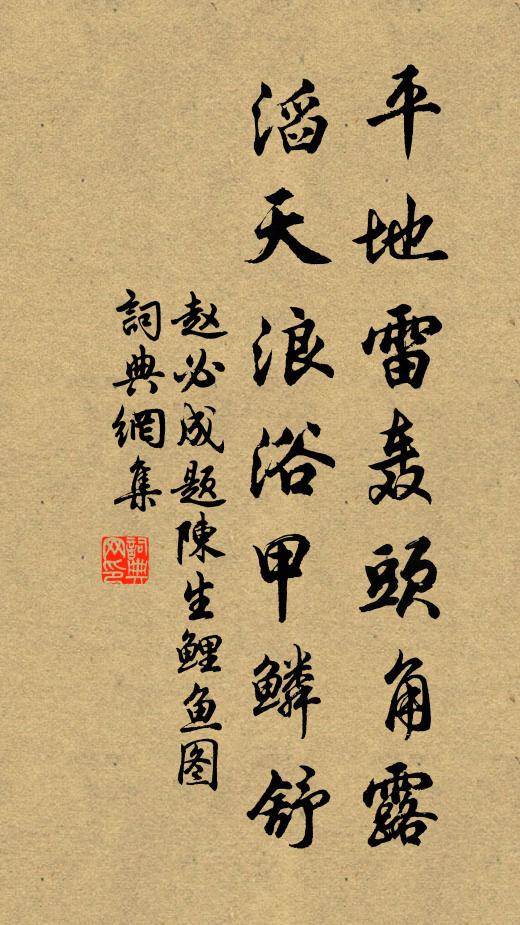 平地雷轰頭角露
滔天浪浴甲鳞舒
赵必成题陳生鲤鱼图
詞典網集
詞典
网印